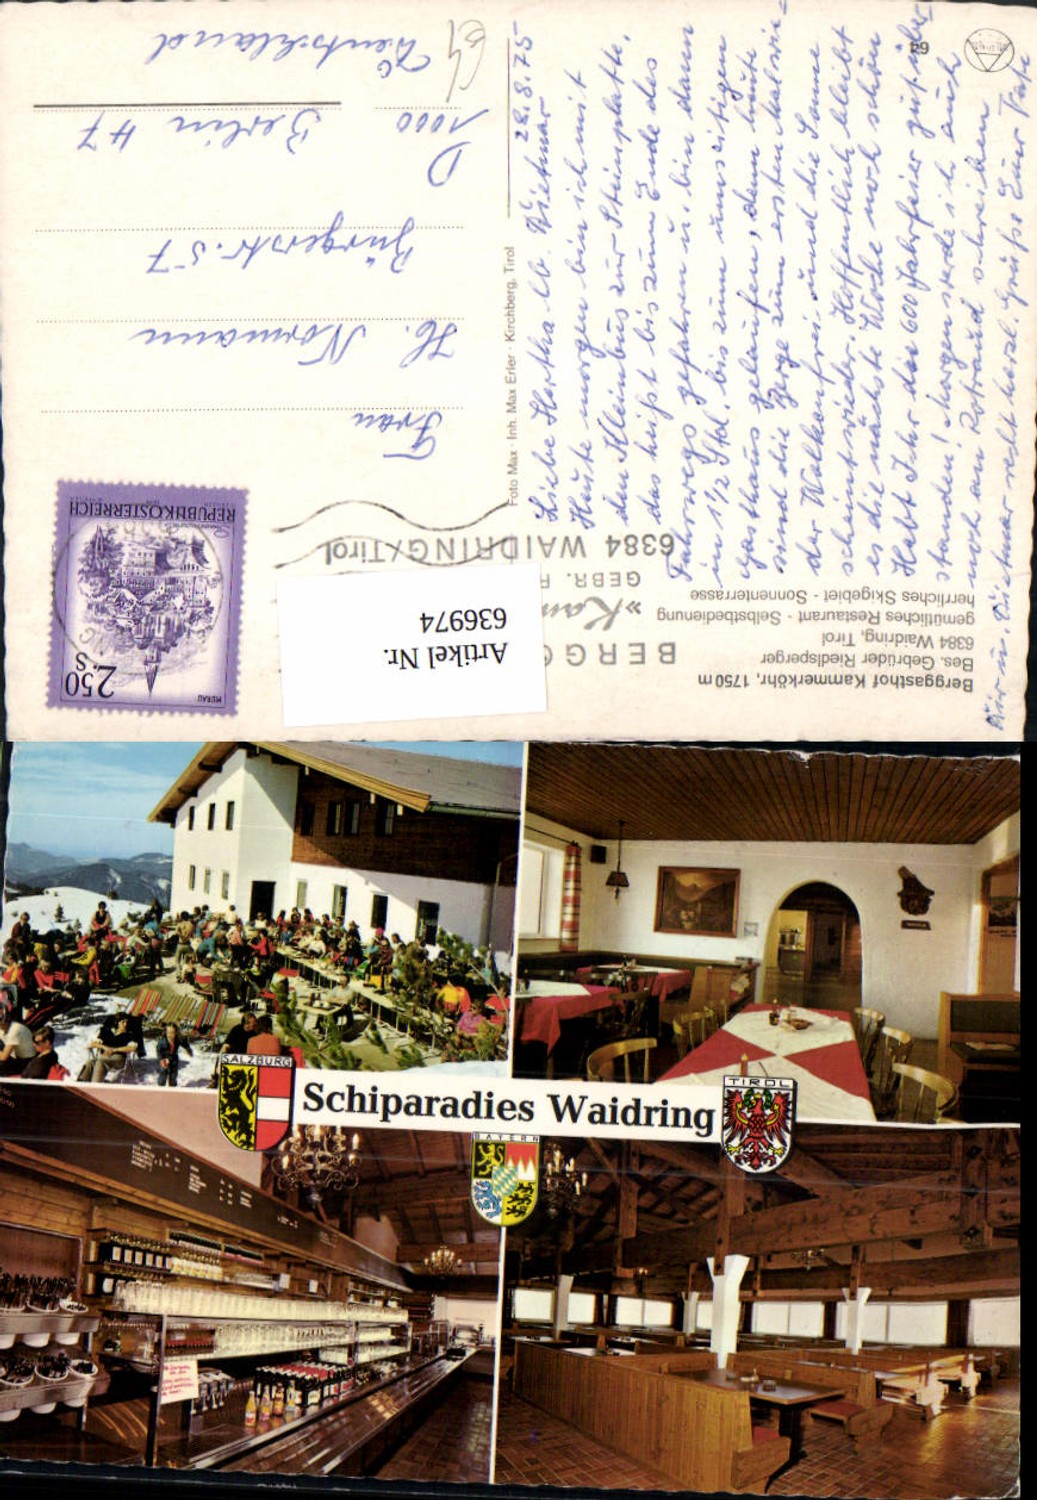 Berggasthof Kammerköhr, 1750 m
Bes. Gebrüder Riedlsperger
6384 Waidring, Tirol
gemütliches Restaurant - Selbstbedienung
herrliches Skigebiet - Sonnenterrasse
BERGG
»Kam
GEBR. R
6384 WAIDRING/Tirol
Artikel Nr.
636974
MURAU
2.50
S
REPUBLIK ÖSTERREICH
Foto Max · Inh. Max Erler · Kirchberg, Tirol
29
64
Frau
H. Normann
Bürgerstr. 57
D
1000 Berlin 47
Deutschland
28.8.75
Liebe Hertha, lb. Dietmar
Heute morgen bin ich mit
dem Kleinbus zur Steinplatte,
das heißt bis zum Ende des
Fahrwegs gefahren u. bin dann
in 1½ Std. bis zum umseitigen
Gasthaus gelaufen, denn heute
sind die Berge zum ersten Mal wie-
der Wolkenfrei und die Sonne
scheint wieder. Hoffentlich bleibt
es die nächste Woche noch schön
Habt Ihr die 600 Jahrfeier gut über
standen! Morgen werde ich auch
noch an Rotraud schreiben
Dir u. Dietmar recht herzl. Grüße Eure
SALZBURG
Schiparadies Waidring
TIROL
BAYERN